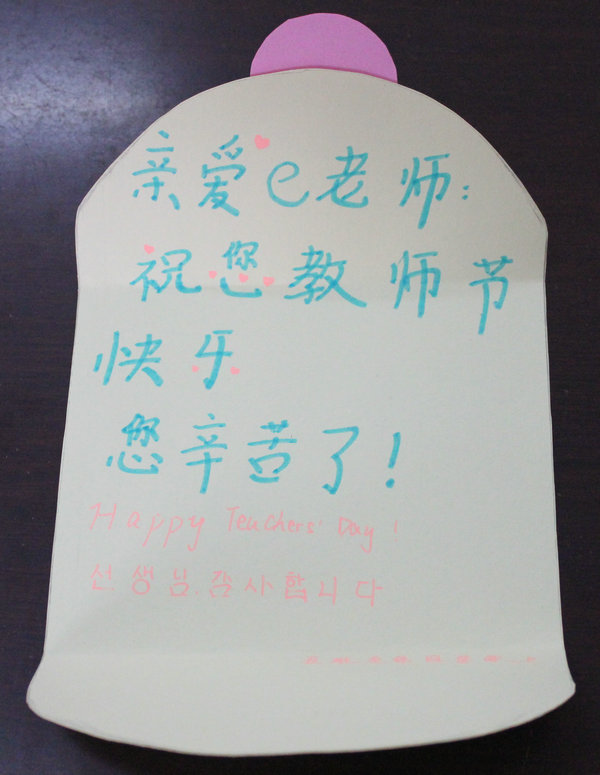 亲爱e老师:
祝您教师节
快乐
您辛苦了!
Happy Teachers' Day!
선생님.감사합니다